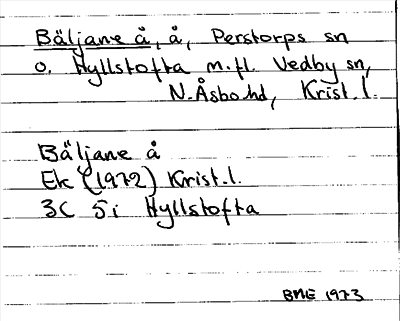 Bäljane å, å, Perstorps sn
o. Hyllstofta m.fl. Vedby sn,
N.Åsbo hd, Krist.l.
Bäljane å
Ek (1972) Krist.l.
3C 5i Hyllstofta
BME 1973